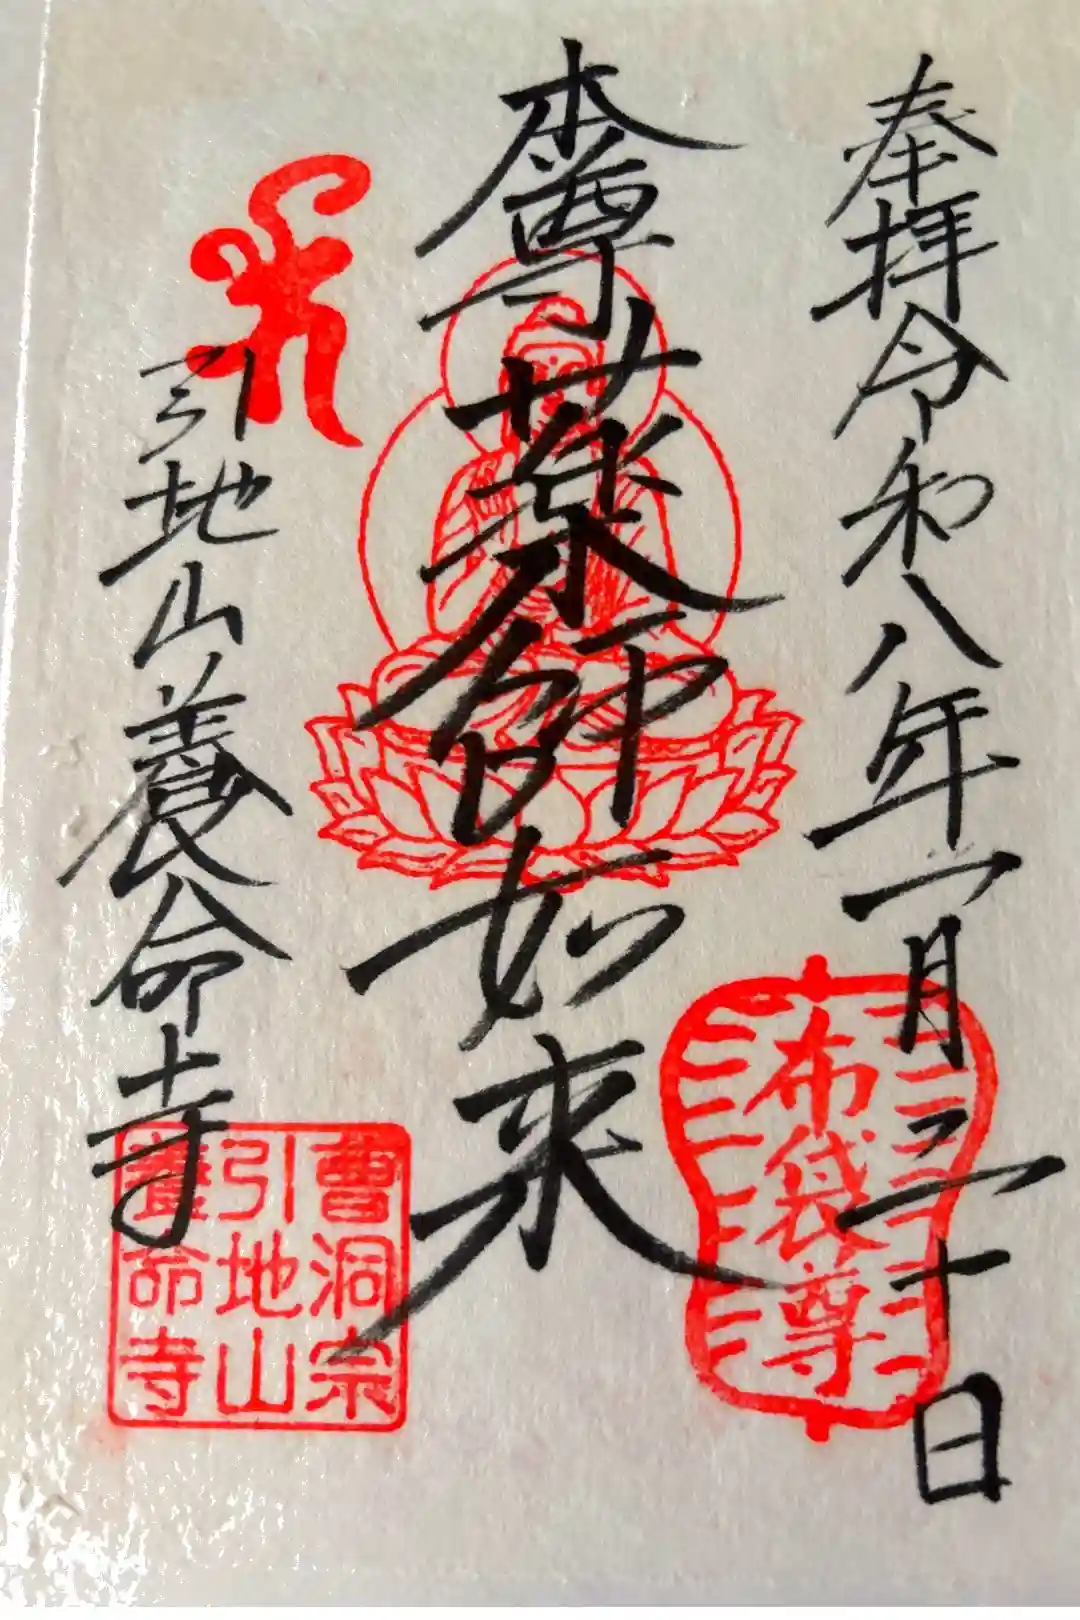 奉拝令和八年一月二十日
布袋尊
本尊薬師如来
引地山養命寺
曹洞宗
引地山
養命寺